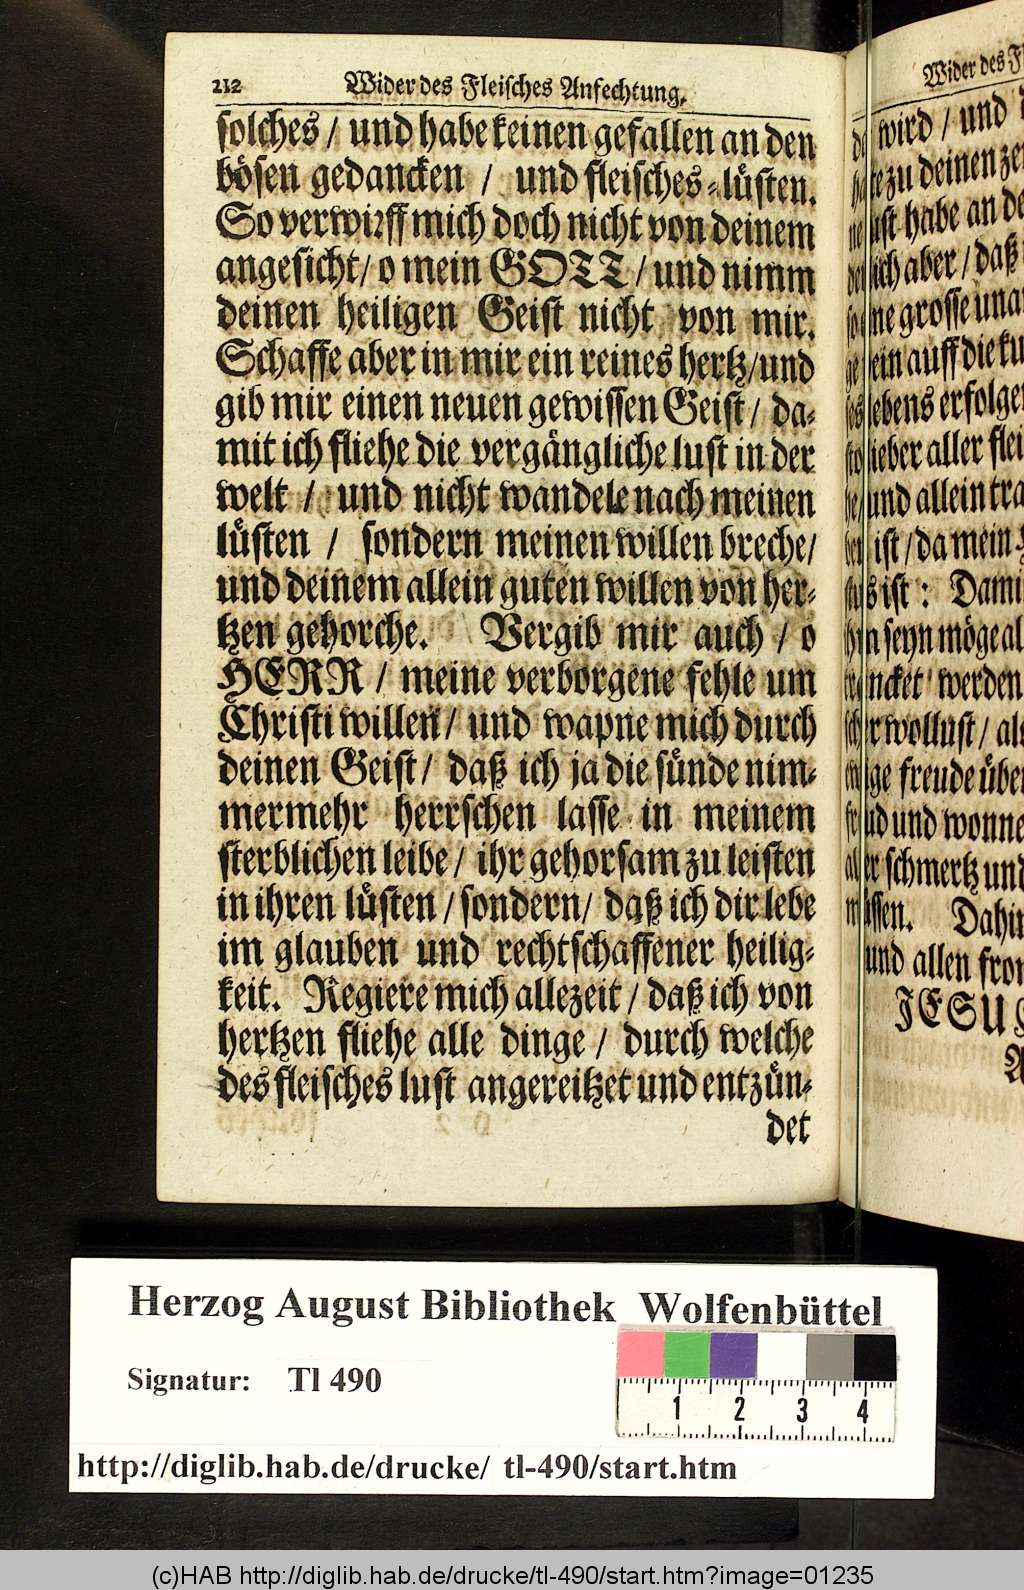 212 Wider des Fleisches Anfechtung,
solches / und habe keinen gefallen an den
bösen gedancken / und fleisches-lüsten.
So verwirff mich doch nicht von deinem
angesicht / o mein GOTT / und nimm
deinen heiligen Geist nicht von mir.
Schaffe aber in mir ein reines hertz / und
gib mir einen neuen gewissen Geist / da-
mit ich fliehe die vergängliche lust in der
welt / und nicht wandele nach meinen
lüsten / sondern meinen willen breche /
und deinem allein guten willen von her-
tzen gehorche. Vergib mir auch / o
HERR / meine verborgene fehle um
Christi willen / und wapne mich durch
deinen Geist / daß ich ja die sünde nim-
mermehr herrschen lasse in meinem
sterblichen leibe / ihr gehorsam zu leisten
in ihren lüsten / sondern / daß ich dir lebe
im glauben und rechtschaffener heilig-
keit. Regiere mich allezeit / daß ich von
hertzen fliehe alle dinge / durch welche
des fleisches lust angereitzet und entzün-
det
Wider des
wird / und
zu deinen
habe an
aber / daß
grosse
auff die
lebens
lieber aller
und allein
ist / da mein
ist : Dami
seyn möge
werden
wollust /
freude
und wonne
schmertz und
Dahin
und allen
JESU
Herzog August Bibliothek Wolfenbüttel
Signatur: Tl 490
1 2 3 4
http://diglib.hab.de/drucke/ tl-490/start.htm
(c)HAB http://diglib.hab.de/drucke/tl-490/start.htm?image=01235